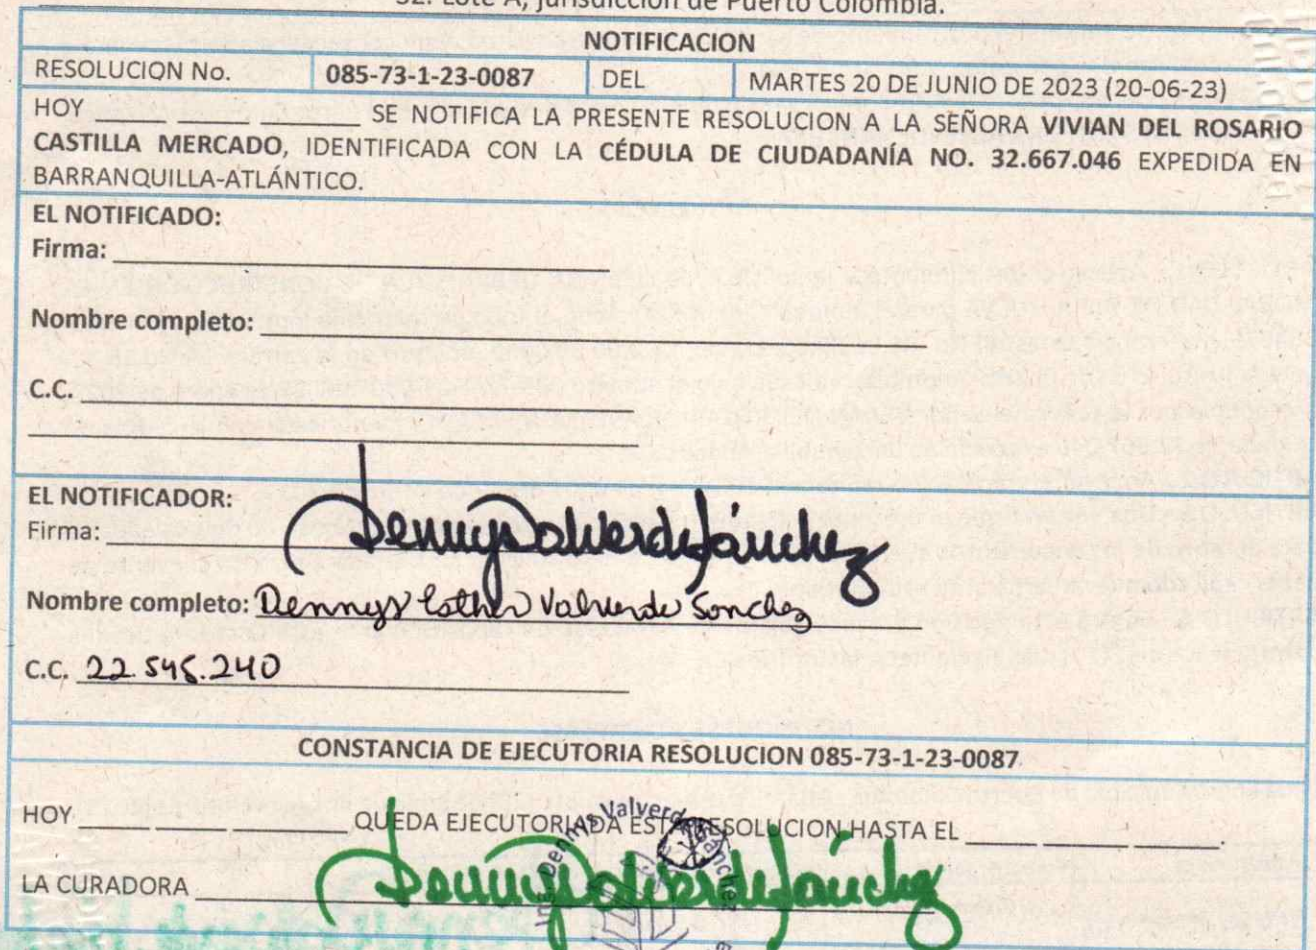 32. Lote A, jurisdicción de Puerto Colombia.
NOTIFICACION
RESOLUCION No. 085-73-1-23-0087 DEL MARTES 20 DE JUNIO DE 2023 (20-06-23)
HOY _____ _____ ________ SE NOTIFICA LA PRESENTE RESOLUCION A LA SEÑORA VIVIAN DEL ROSARIO
CASTILLA MERCADO, IDENTIFICADA CON LA CÉDULA DE CIUDADANÍA NO. 32.667.046 EXPEDIDA EN
BARRANQUILLA-ATLÁNTICO.
EL NOTIFICADO:
Firma:
Nombre completo:
C.C.
EL NOTIFICADOR:
Firma: Dennys Valverde Sánchez
Nombre completo: Dennys Esther Valverde Sanchez
C.C. 22.545.240
CONSTANCIA DE EJECUTORIA RESOLUCION 085-73-1-23-0087
HOY _____ ___ ________ QUEDA EJECUTORIADA ESTA RESOLUCION HASTA EL _____ ___ ______.
Ing. Dennys Valverde Sánchez
LA CURADORA Dennys Valverde Sánchez